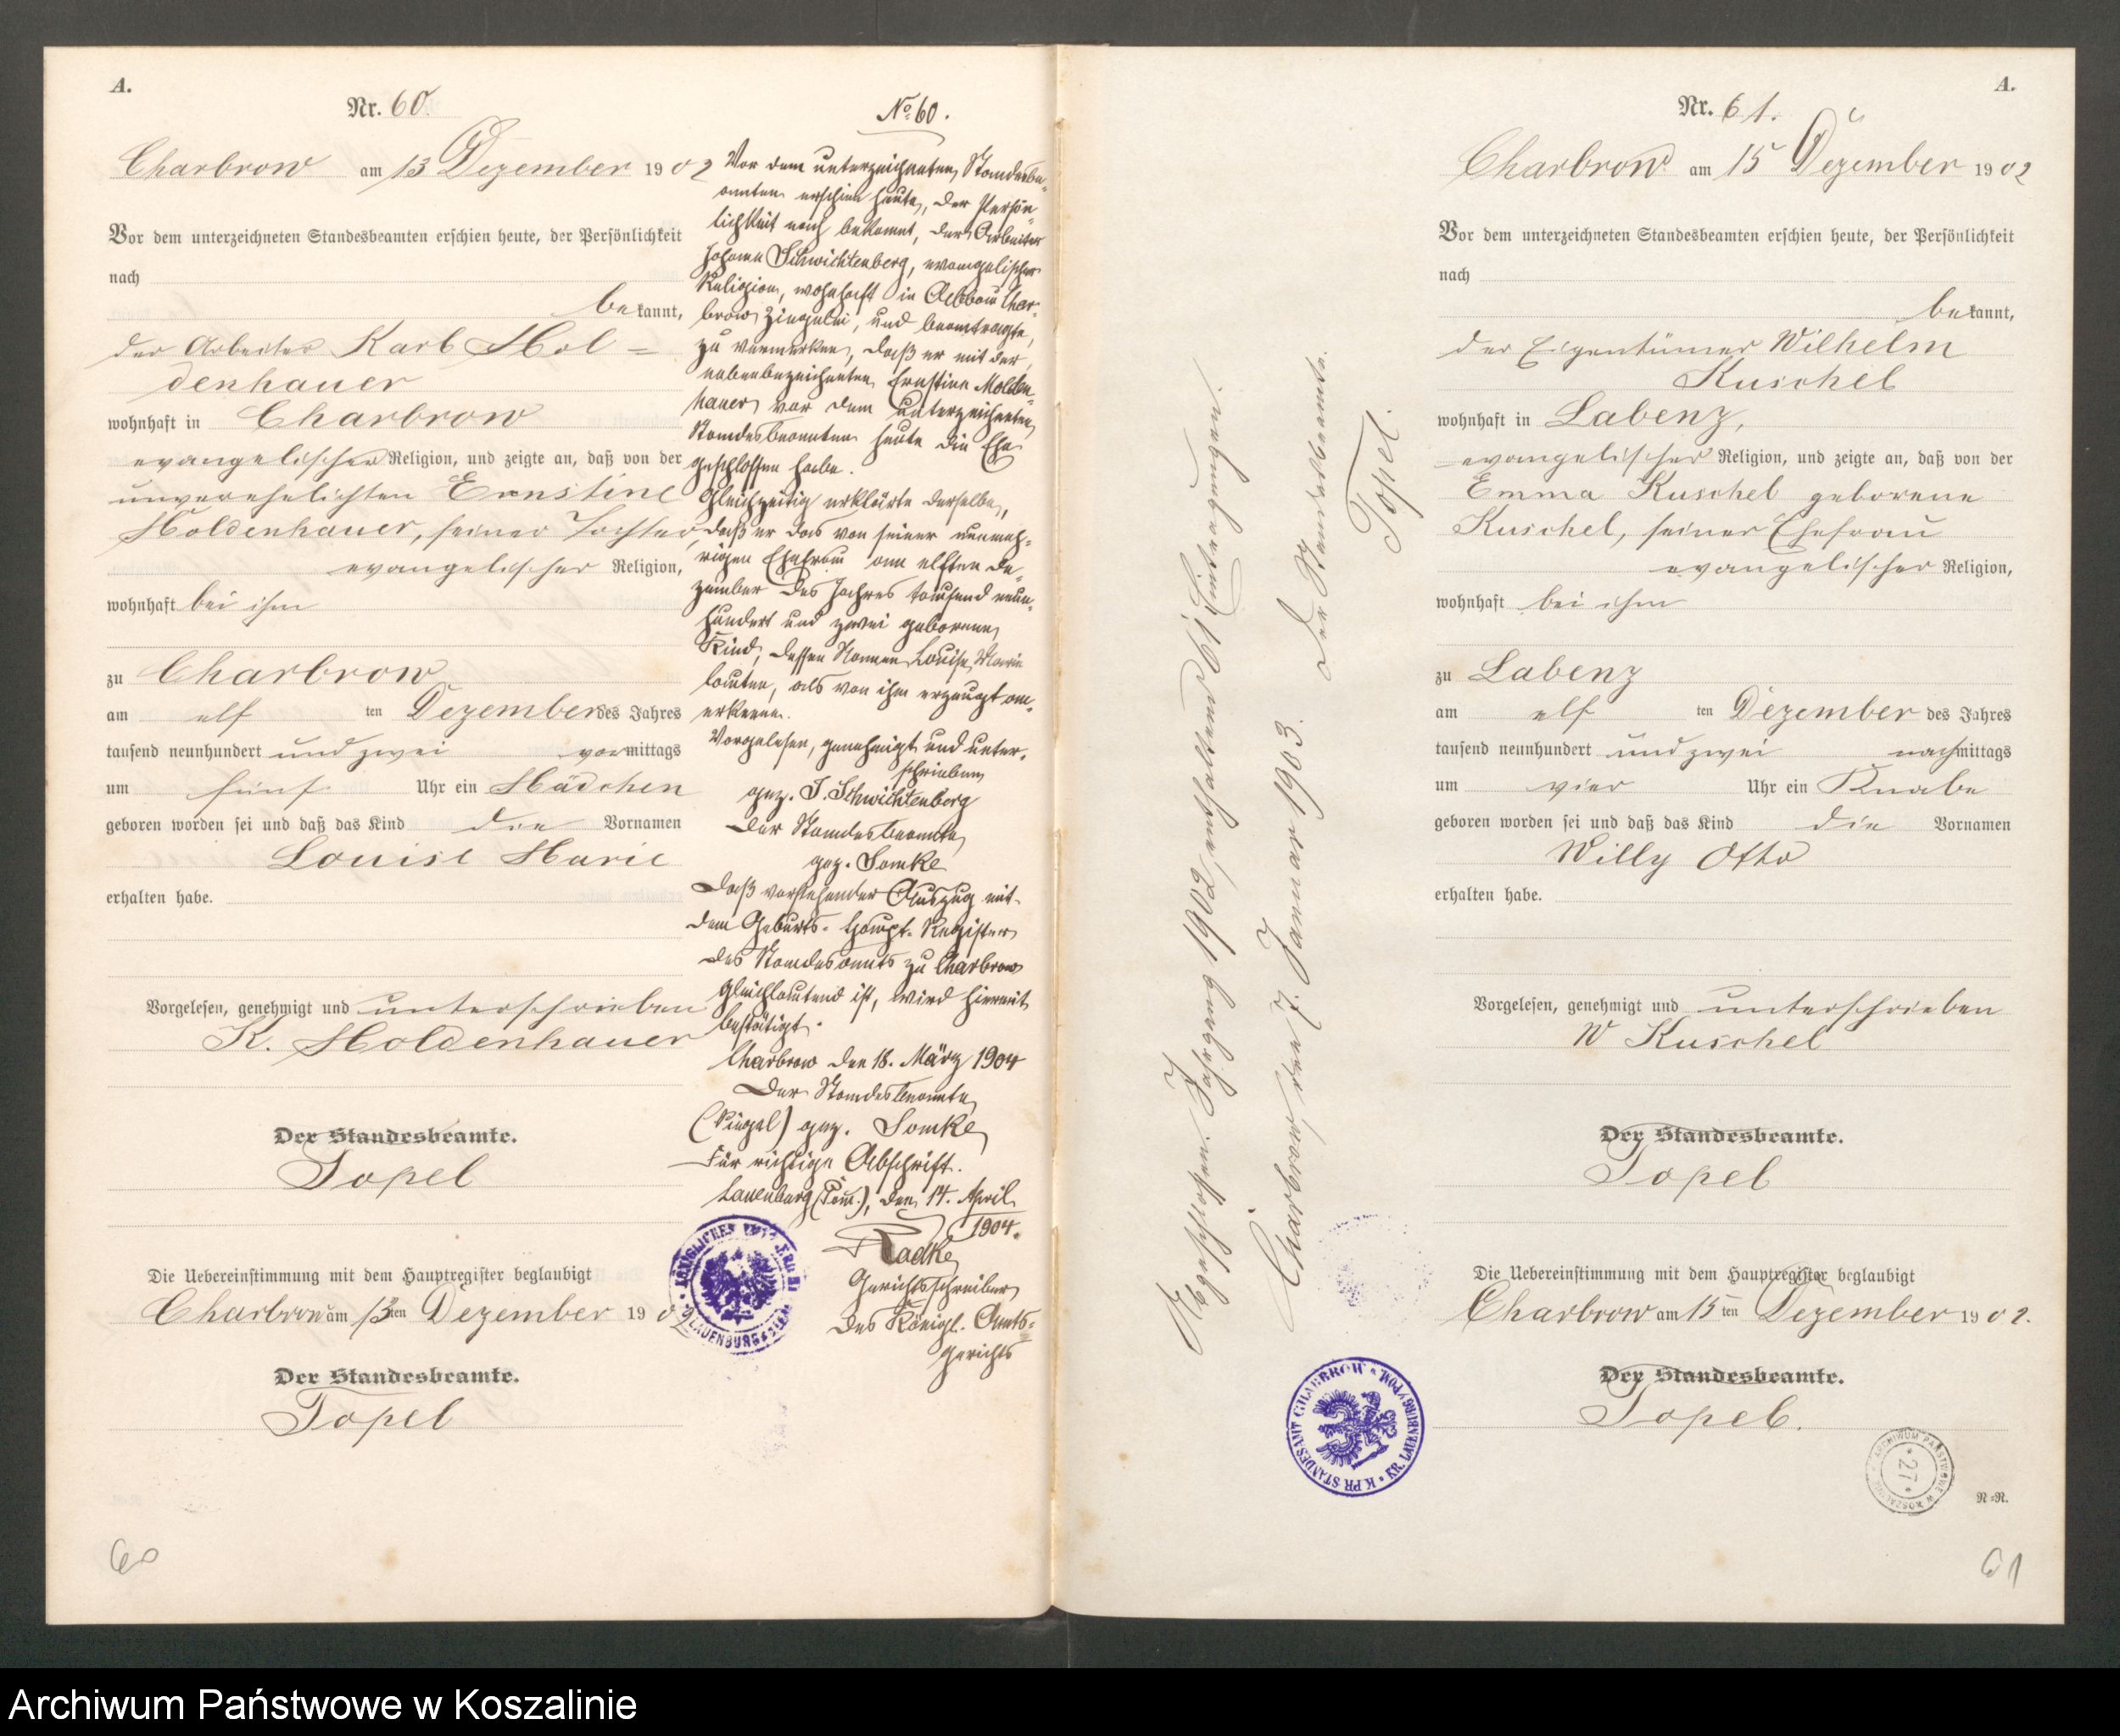 A.
Nr. 60.
Charbrow am 13 Dezember 1902
Vor dem unterzeichneten Standesbeamten erschien heute, der Persönlichkeit
nach
bekannt,
der Arbeiter Karl Mol=
denhauer
wohnhaft in Charbrow
evangelischer Religion, und zeigte an, daß von der
unverehelichten Ernstine
Moldenhauer, seiner Tochter,
evangelischer Religion,
wohnhaft bei ihm
zu Charbrow
am elf ten Dezember des Jahres
tausend neunhundert und zwei vormittags
um fünf Uhr ein Mädchen
geboren worden sei und daß das Kind die Vornamen
Louise Marie
erhalten habe.
Vorgelesen, genehmigt und unterschrieben
K. Moldenhauer
Der Standesbeamte.
Topel
Die Uebereinstimmung mit dem Hauptregister beglaubigt
Charbrow am 13ten Dezember 1902
Der Standesbeamte.
Topel
60
No 60.
Vor dem unterzeichneten Standesbe-
amten erschien heute, der Persön-
lichkeit nach bekannt, der Arbeiter
Johann Schwichtenberg, evangelischer
Religion, wohnhaft in Abbau Char-
brow Ziegelei, und beantragte,
zu vermerken, daß er mit der
nebenbezeichneten Ernstine Molden-
hauer vor dem unterzeichneten
Standesbeamten heute die Ehe
geschlossen habe.
Gleichzeitig erklärte derselbe,
daß er das von seiner nunmeh-
rigen Ehefrau am elften De-
zember des Jahres tausend neun-
hundert und zwei geborene
Kind, dessen Namen Louise Marie
lauten, als von ihm erzeugt an-
erkenne.
Vorgelesen, genehmigt und unter-
schrieben
gez. J. Schwichtenberg
Der Standesbeamte
gez. Somke
Daß vorstehender Auszug mit
dem Geburts-Haupt-Register
des Standesamts zu Charbrow
gleichlautend ist, wird hiermit
bestätigt.
Charbrow den 18. März 1904
Der Standesbeamte
(Siegel) gez. Somke
Für richtige Abschrift.
Lauenburg (Pom.), den 14. April
1904.
Radke
Gerichtsschreiber
des Königl. Amts-
gerichts
KÖNIGLICHES
LAUENBURG
Abgeschlossen. Jahrgang 1902, enthaltend 61 Eintragungen.
Charbrow, den 7. Januar 1903.
Der Standesbeamte.
Topel.
K. PR. STANDESAMT CHARBROW * KR. LAUENBURG I/POM. *
A.
Nr. 61.
Charbrow am 15 Dezember 1902
Vor dem unterzeichneten Standesbeamten erschien heute, der Persönlichkeit
nach
bekannt,
der Eigentümer Wilhelm
Kuschel
wohnhaft in Labenz,
evangelischer Religion, und zeigte an, daß von der
Emma Kuschel geborene
Kuschel, seiner Ehefrau
evangelischer Religion,
wohnhaft bei ihm
zu Labenz
am elf ten Dezember des Jahres
tausend neunhundert und zwei nachmittags
um vier Uhr ein Knabe
geboren worden sei und daß das Kind die Vornamen
Willy Otto
erhalten habe.
Vorgelesen, genehmigt und unterschrieben
W Kuschel
Der Standesbeamte.
Topel
Die Uebereinstimmung mit dem Hauptregister beglaubigt
Charbrow am 15ten Dezember 1902.
Der Standesbeamte.
Topel.
ARCHIWUM PAŃSTWOWE W KOSZALINIE
* 27 *
N=R.
61
Archiwum Państwowe w Koszalinie